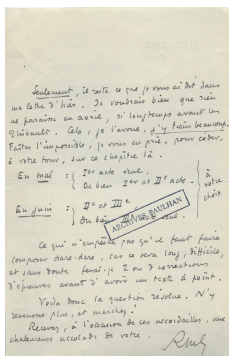 Seulement, il reste ce que je vous ai dit dans
ma lettre d'hier. Je voudrais bien que rien
ne paraisse en avril, si longtemps avant les
Thibault. Cela, je l'avoue, j'y tiens beaucoup.
Faites l'impossible, je vous en prie, pour céder,
à votre tour, sur ce chapitre là.
En mai : Ier acte seul.
Ou bien Ier et IIe acte.
à votre choix
En juin : IIe et IIIe
Ou bien IIIe seul.
ARCHIVES PAULHAN
Ce qui n'empêche pas qu'il faut faire
composer dare-dare, car ce sera long, difficile,
et sans doute ferai-je 2 ou 3 corrections
d'épreuves avant d'avoir un texte à point.
Voilà donc la question résolue. N'y
revenons plus, et marchez !
Recevez, à l'occasion de ces accordailles, une
chaleureuse accolade de votre